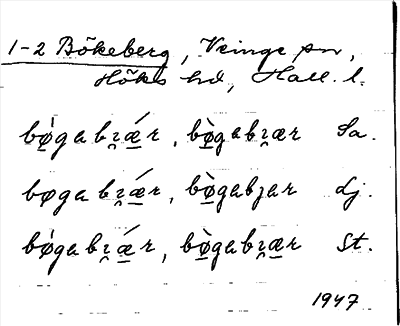 1-2 Bökeberg, Veinge sn,
Höks hd, Hall. l.
bø̀gabı̯ǽ̲r, bø̲̀gabı̯æ̲r Sa.
bøgabı̯ǽ̲r, bø̲̀gabjær Lj.
bø̀gabı̯ǽ̲r, bø̲̀gabı̯æ̲r St.
1947